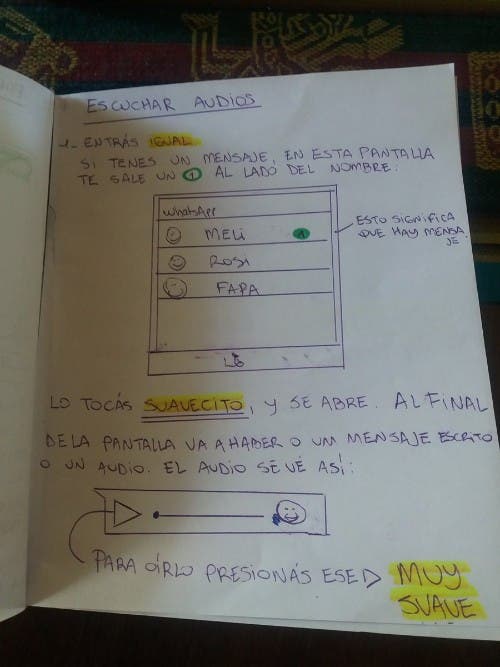 ESCUCHAR AUDIOS
1- ENTRÁS IGUAL
SI TENES UN MENSAJE, EN ESTA PANTALLA
TE SALE UN 1 AL LADO DEL NOMBRE.
WhatsApp
MELI 1
ROSI
FAPA
LG
ESTO SIGNIFICA
QUE HAY MENSA
JE
LO TOCÁS SUAVECITO, Y SE ABRE. AL FINAL
DE LA PANTALLA VA A HABER O UN MENSAJE ESCRITO
O UN AUDIO. EL AUDIO SE VÉ ASÍ:
PARA OÍRLO PRESIONÁS ESE ▷ MUY
SUAVE